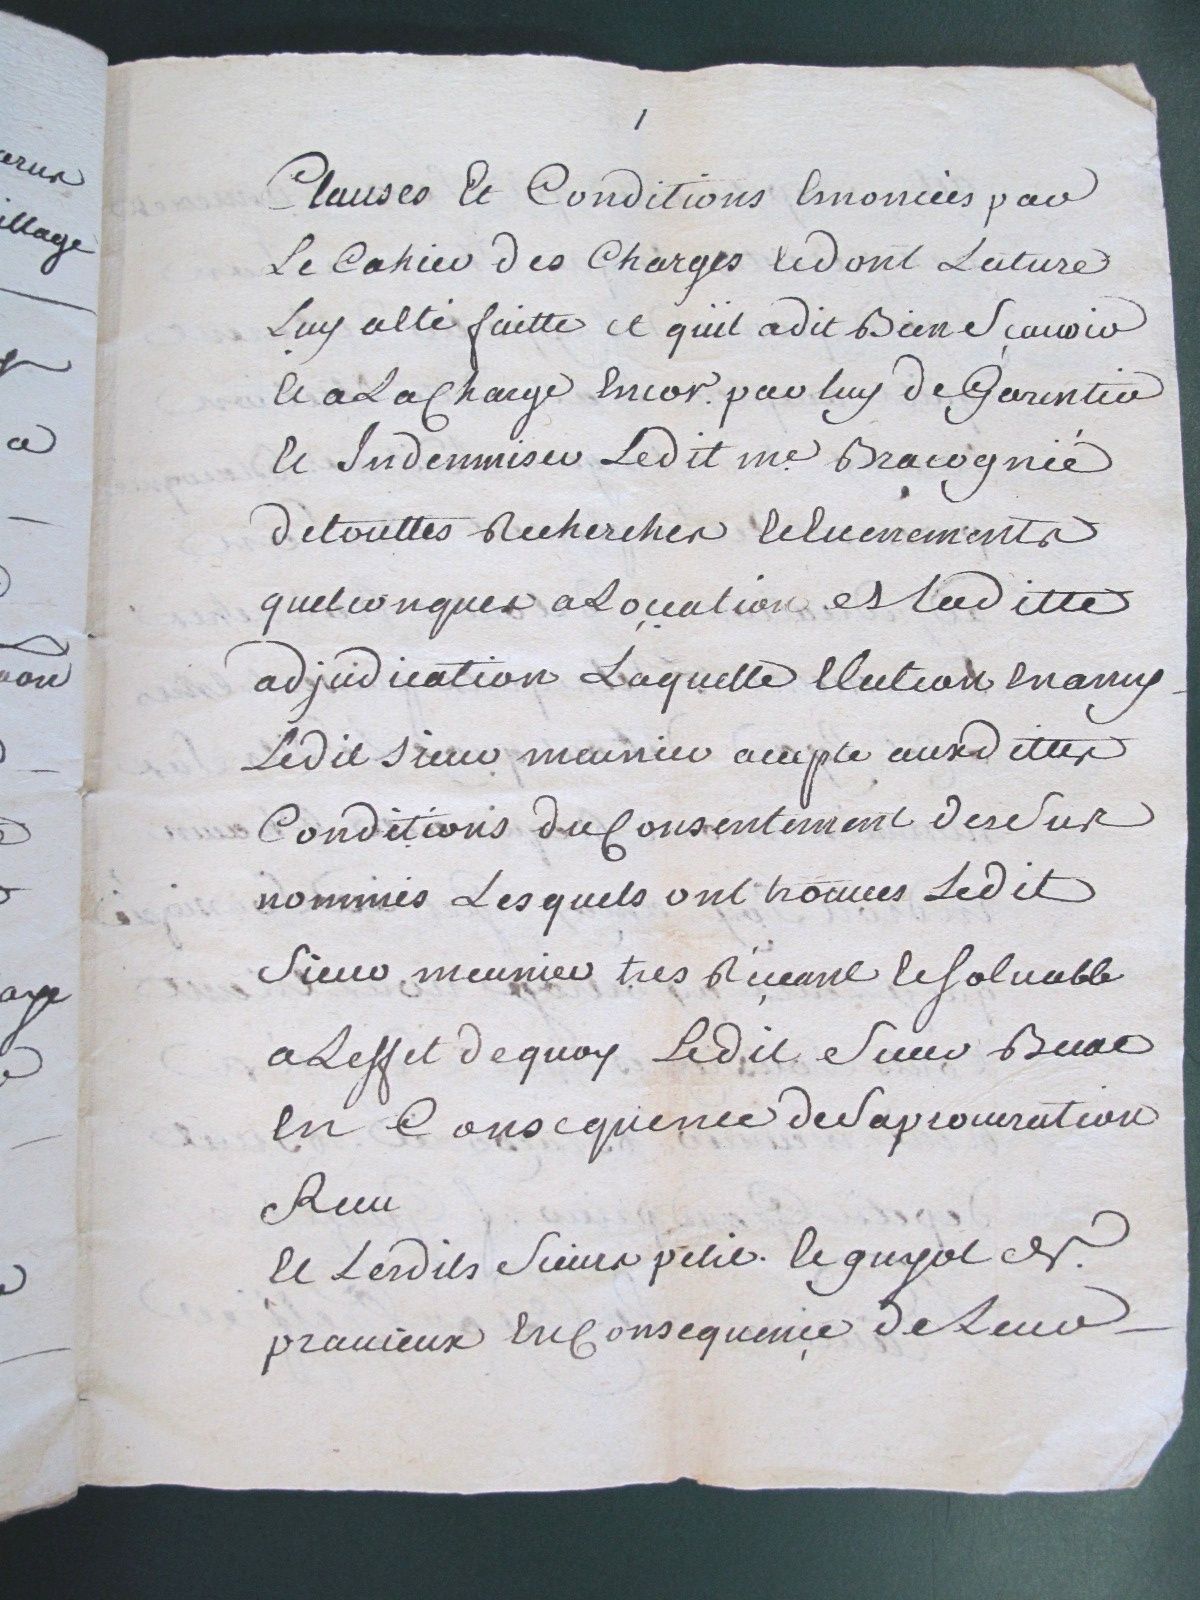 1
Clauses Et Conditions Enoncées par
Le Cahier des Charges et dont Lecture
Luy a Eté faitte et quil a dit Bien Scavoir
Et a La Charge Encor. par luy de Garentir
Et Indemniser Ledit me. Bracognié
de touttes Recherches Et Evenements
quelconques a Location de laditte
adjudication Laquelle Election En amy
Ledit Sieur meunier accepte auxdittes
Conditions du Consentement des Sus
nommés Lesquels ont trouvés Ledit
Sieur meunier tres Récéant Et Solvable
a Leffet de quoy Ledit Sieur
En Consequence de Sa procuration
Et Lesdits Sieurs petit. Et guyot Et
pranieux En Consequence de Leur
erus
illage
a